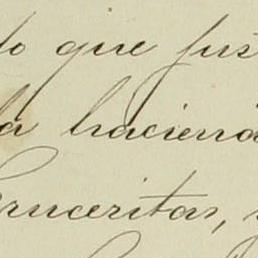 do que jus
la haciend
Cruceritas,